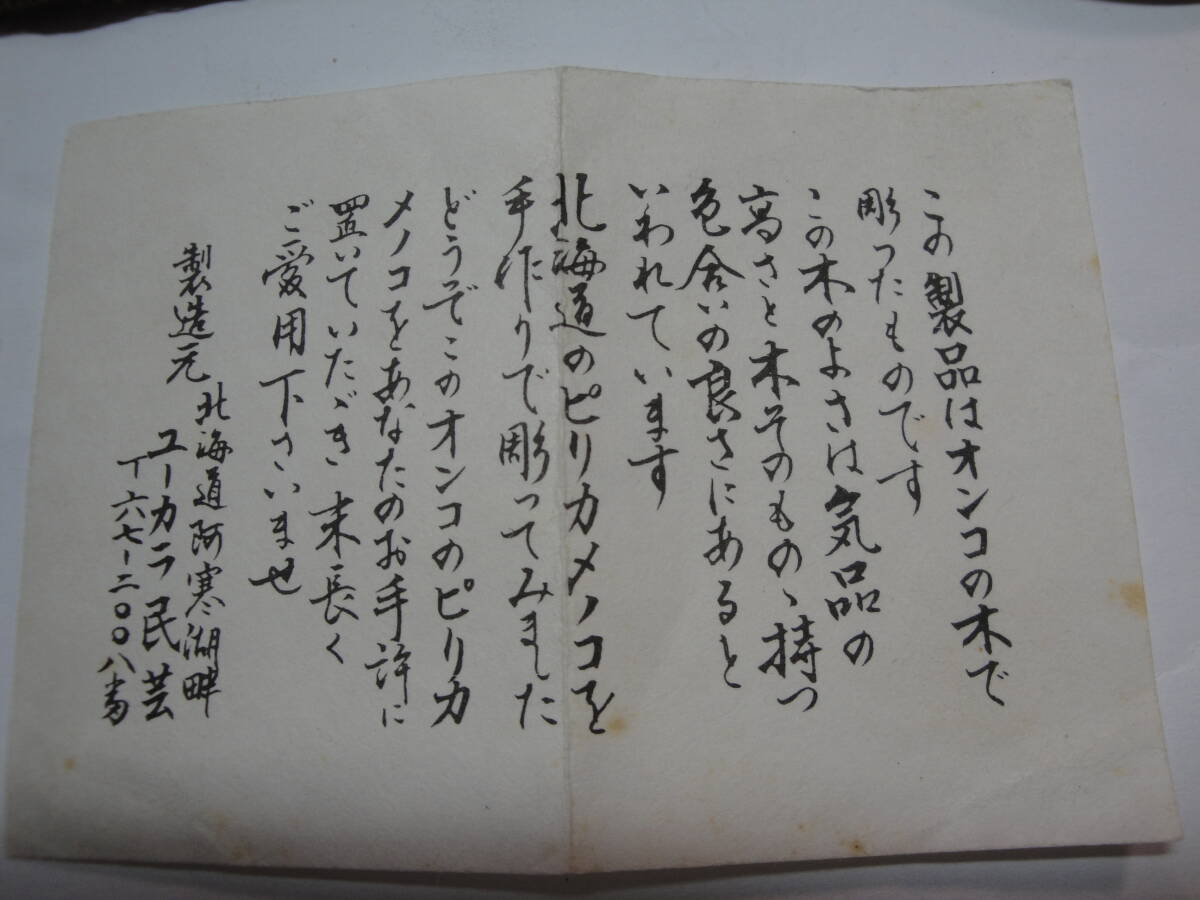 この製品はオンコの木で
彫ったものです
この木のよさは気品の
高さと木そのものゝ持つ
色合いの良さにあると
いわれています
北海道のピリカメノコを
手作りで彫ってみました
どうぞこのオンコのピリカ
メノコをあなたのお手許に
置いていたゞき末長く
ご愛用下さいませ
製造元 北海道阿寒湖畔
ユーカラ民芸
T六七-二〇〇八番